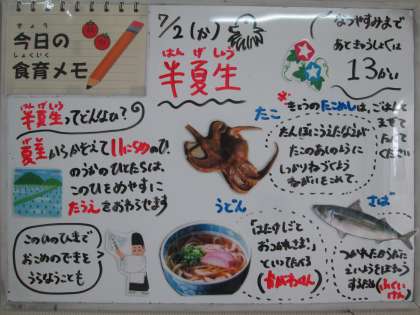 きょう
今日の
しょくいく
食育メモ
7/2(か)
はんげしょう
半夏生
なつやすみまで
あときゅうしょくは
13かい
はんげしょう
半夏生ってどんなの?
夏至からかぞえて11にちめのひ
のうかのひとたちは、
このひをめやすに
たうえをおわらせます
このひのひきで
おこめのできを
うらなうことも
たこ
*きょうのたこめしは、ごはんと
まぜて
たべて
ください
たんぼにうえたなえが
たこのあしのように
しっかりねづくよう
ねがいをこめて。
うどん
「はたけしごと
おつかれさま!」
といってたべる
(かがわけん)
さば
つかれたからだに
えいようをほきゅう
するため(ふくい
けん)